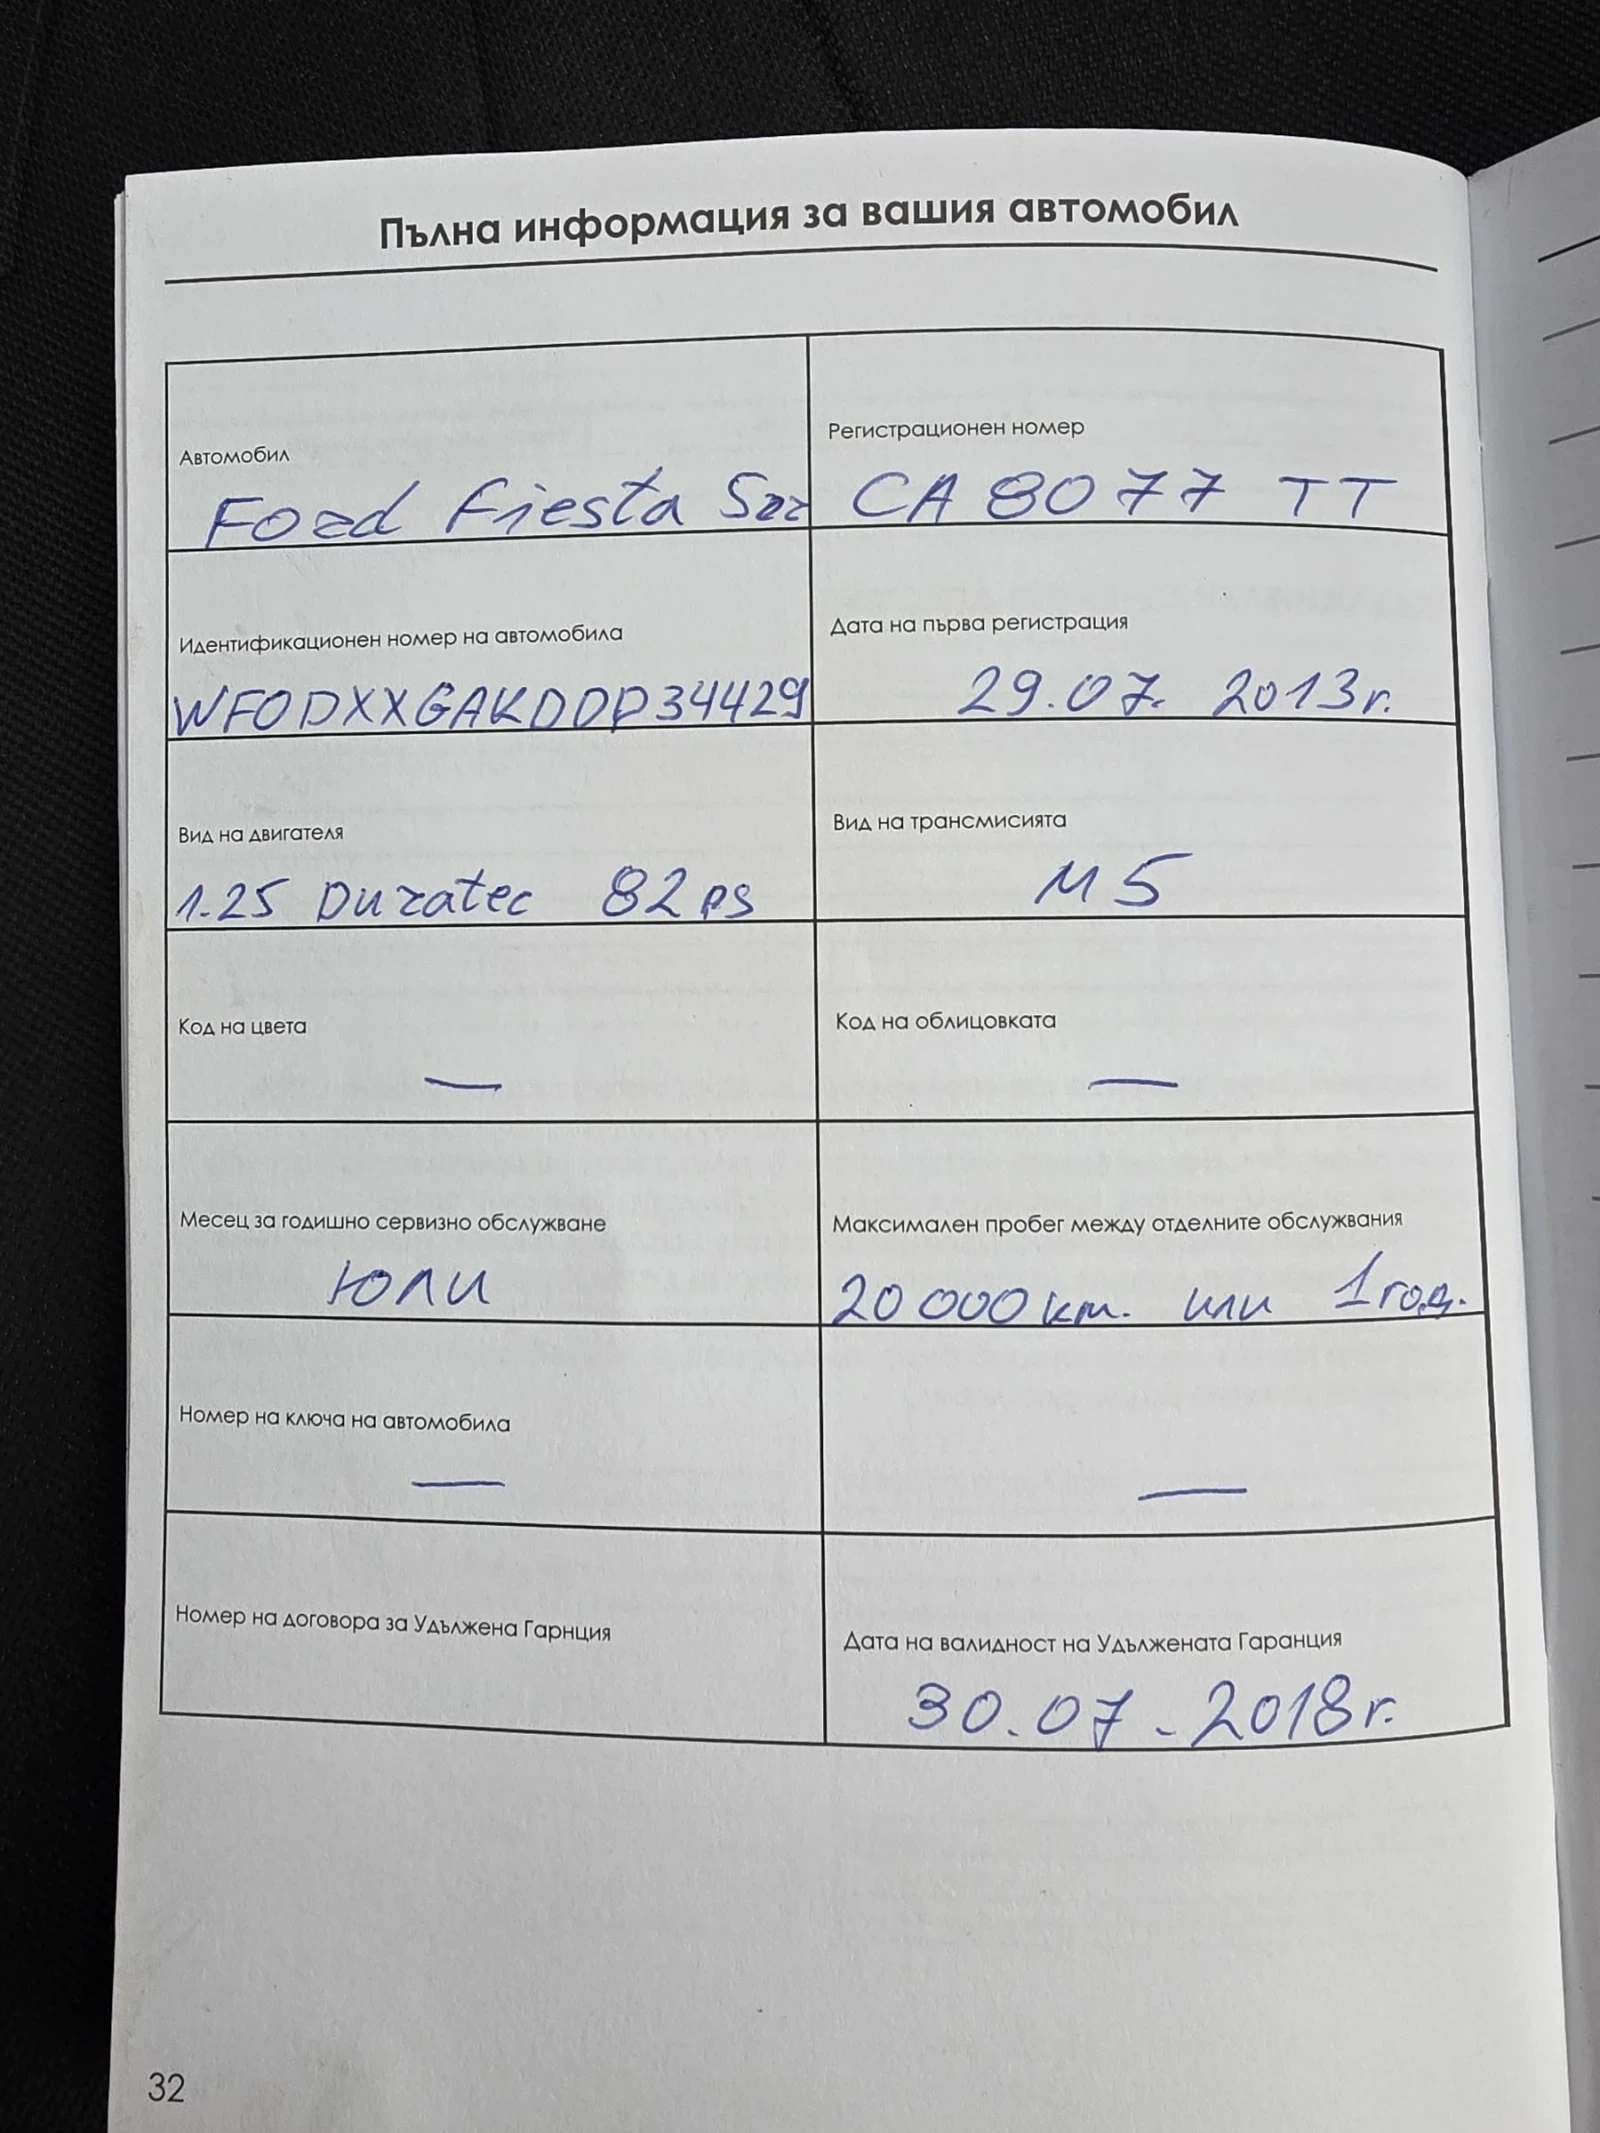 Пълна информация за вашия автомобил
Автомобил
Ford Fiesta
Регистрационен номер
CA 8077 TT
Идентификационен номер на автомобила
WF0DXXGAKDDD34429
Дата на първа регистрация
29.07. 2013г.
Вид на двигателя
1.25 Duratec 82 ps
Вид на трансмисията
M5
Код на цвета
—
Код на облицовката
—
Месец за годишно сервизно обслужване
ЮЛИ
Максимален пробег между отделните обслужвания
20 000 км. или 1 год.
Номер на ключа на автомобила
—
—
Номер на договора за Удължена Гарнция
Дата на валидност на Удължената Гаранция
30.07.2018г.
32